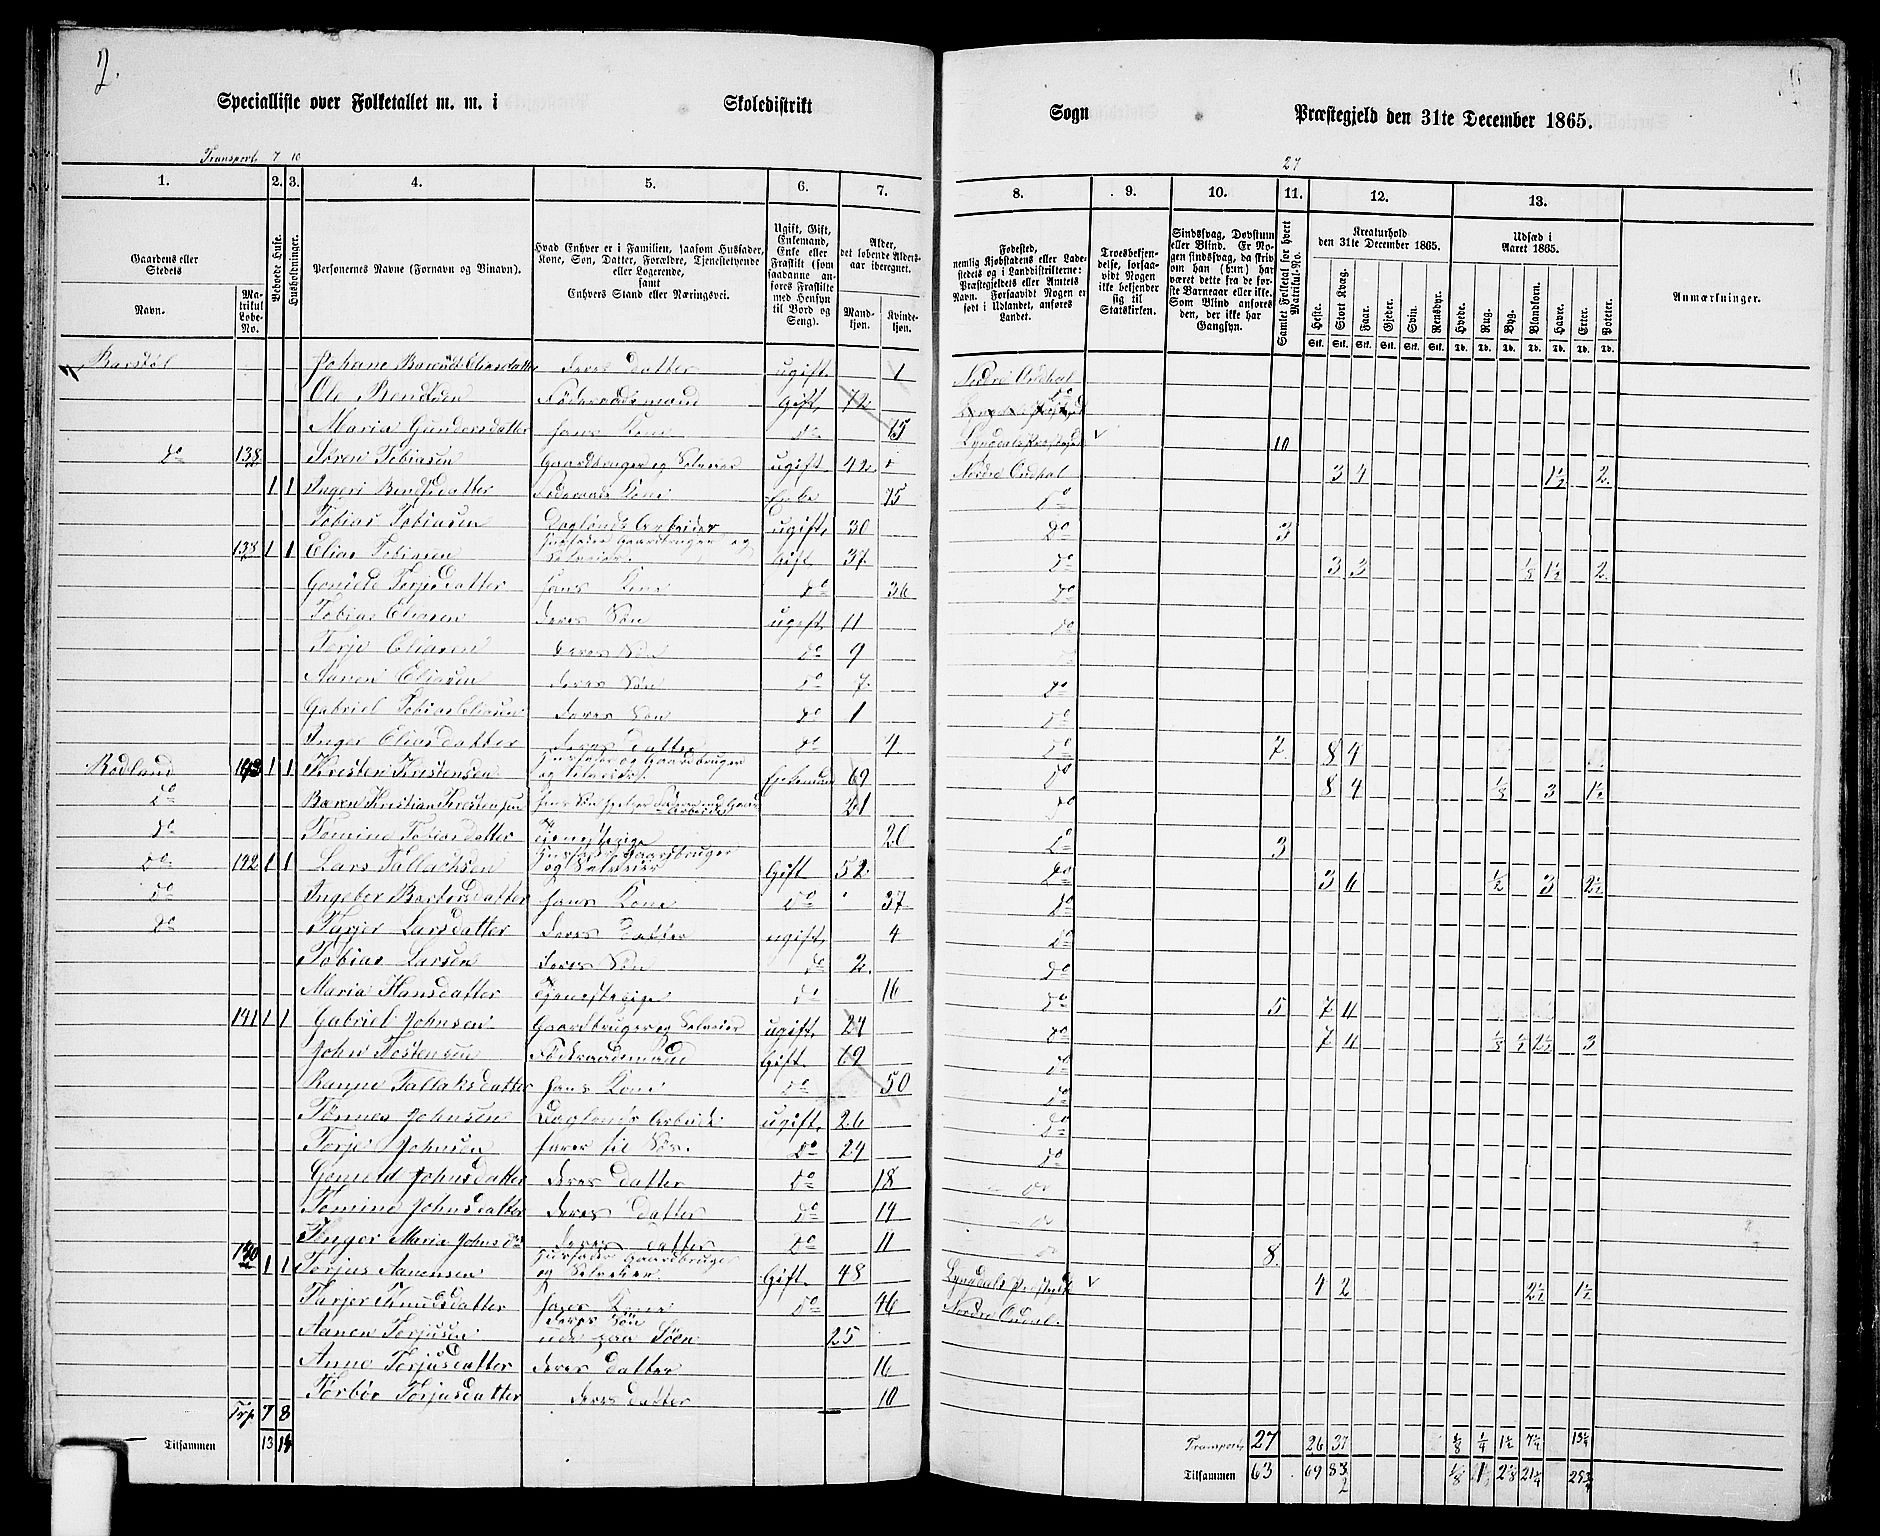 2.
Specialliste over Folketallet m. m. i Skoledistrikt
Sogn Præstegjeld den 31te December 1865.
Transport 7 10
27
1. 2. 3. 4. 5. 6. 7.
8. 9. 10. 11. 12. 13.
Gaardens eller Stedets
Navn.
Matrikul Løbe-No.
Beboede Huse.
Husholdninger.
Personernes Navne (Fornavn og Tilnavn).
Hvad Enhver er i Familien, saasom Husfader, Kone, Søn, Datter, Forældre, Tjenestetyende eller Logerende, samt Enhvers Stand eller Næringsvei.
Ugift, Gift, Enkemand, Enke eller Fraskilt (som saadanne anføres Fraskilte med Hensyn til Bord og Seng).
Alder, det løbende Alders-aar iberegnet.
Mandkjøn.
Kvindekjøn.
Fødested, nemlig Kjøbstadens eller Ladestedets og i Landdistrikterne: Præstegjeldets eller Amtets Navn. Forsaavidt Nogen er født i Udlandet, anføres Landet.
Troesbekjendelse, forsaavidt Nogen ikke bekjender sig til Statskirken.
Sindssvag, Døvstum eller Blind. Er Nogen sindssvag, da skrives om han (hun) har været dette fra de første Barneaar eller ikke. Som Blind anføres den, der ikke har Gangsyn.
Samlet Folketal for hvert Matrikul-No.
Kreaturhold den 31te December 1865.
Heste. Stort Kvæg. Faar. Gjeder. Svin. Rensdyr.
Stk. Stk. Stk. Stk. Stk. Stk.
Udsæd i Aaret 1865.
Hvede. Rug. Byg. Blandkorn. Havre. Erter. Poteter.
Td. Td. Td. Td. Td. Td. Td.
Anmærkninger.
Barstøl Johane Eliasdatter deres Datter ugift 1 Nordre Undhal
Ole Føderaadsmand Gift 72
Maria Gundersdatter hans Kone Do 75 Lyngdals Præstegjeld 10
Do 138 Søren Tobiasen Gaardbruger og Selveier ugift 42 Nordre Undhal 3 4 1½ 2
1 1 Ingeri Bendsdatter Føderaads Kone Enke 75 Do
Tobias Tobiasen Dagløns Arbeider ugift 30 Do 3
138 1 1 Elias Tobiasen Husfader Gaardbruger og Selveier Gift 37 Do 3 3 1½ 2
Gonilde Terjesdatter hans Kone Do 36 Do
Tobias Eliasen deres Søn ugift 11 Do
Terje Eliasen deres Søn Do 9 Do
Aanen Eliasen deres Søn Do 7 Do
Gabriel Tobias Eliasen deres Søn Do 1 Do
Inger Eliasdatter deres Datter Do 4 Do 7 8 4
Rodland 1 1 Kristen Kristensen Husfader og Gaardbruger og Selveier Enkemand 69 Do 8 4 3 1½
Do Kristian Kristensen 21 Do
Do Tomine Tobiasdatter Tjenestepige 20 Do 3
Do 192 1 1 Lars Tallaksen Husfader Gaardbruger og Selveier Gift 52 Do 3 6 ½ 3 2½
Do Ingebor hans Kone Do 37 Do
Do Tarjer Larsdatter deres Datter ugift 4 Do
Tobias Larsen deres Søn Do 2 Do
Maria Hansdatter Tjenestepige Do 16 Do 5 7 4
191 1 1 Gabriel Johnsen Gaardbruger og Selveier ugift 27 Do 7 4 2½ 3
John Tostensen Føderaadsmand Gift 69 Do
Ranne Tallaksdatter hans Kone Do 50 Do
Tønnes Johnsen Dagløns Arbeider ugift 26 Do
Torje Johnsen farer til Søs. Do 24 Do
Gonild Johnsdatter deres Datter Do 18
Tomine Johnsdatter deres Datter Do 14
Inger Maria Johnsd. deres Datter Do 11 8
190 1 1 Torjus Aanensen Husfader Gaardbruger og Selveier Gift 48 Lyngdals Præstegjeld 4 2 2½ 1½
Tarjer Knudsdatter hans Kone Do 46 Nordre Undal
Aanen Torjusen deres Søn ude paa Søen 25
Anne Torjusdatter deres Datter 16
Torbør Torjusdatter deres Datter 10
Trp. 7 8
Tilsammen 13 14
Transport 27 26 37 ⅛ ¼ 7¼ 13¼
Tilsammen 63 69 83 ⅛ 21¼ 25¾